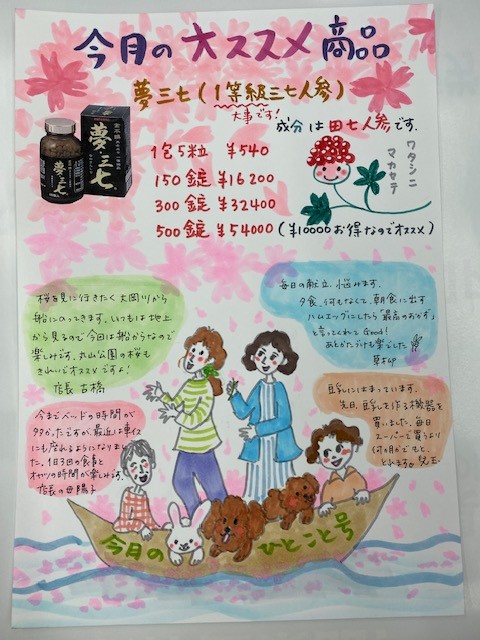 今月のオススメ商品
夢三七(1等級三七人参)
大事です!
成分は田七人参です.
1包5粒 ¥540
150錠 ¥16200
300錠 ¥32400
500錠 ¥54000 (¥10000お得なのでオススメ)
ワタシニ
マカセテ
夢・三七
夢・三七
桜を見に行きたく大岡川から
船にのってきます。いつもは地上
から見るので今回は船からなので
楽しみです。丸山公園の桜も
きれいでオススメですよ!
店長 古橋
毎日の献立、悩みます。
夕食、何もなくて、朝食に出す
ハムエッグにしたら「最高のおかず」
と言ってくれてGood!
あとかたづけも楽でした
今までベッドの時間が
多かったですが最近は車イス
にも座れるようになりまし
た。1日3回の食事と
オヤツの時間が楽しみです。
店長の母 陽子
豆乳にはまっています。
先日、豆乳を作る機器を
買いました。毎日
スーパーで買うより
何ヶ月かでもと、
とれそう。児玉
今月のひとこと号